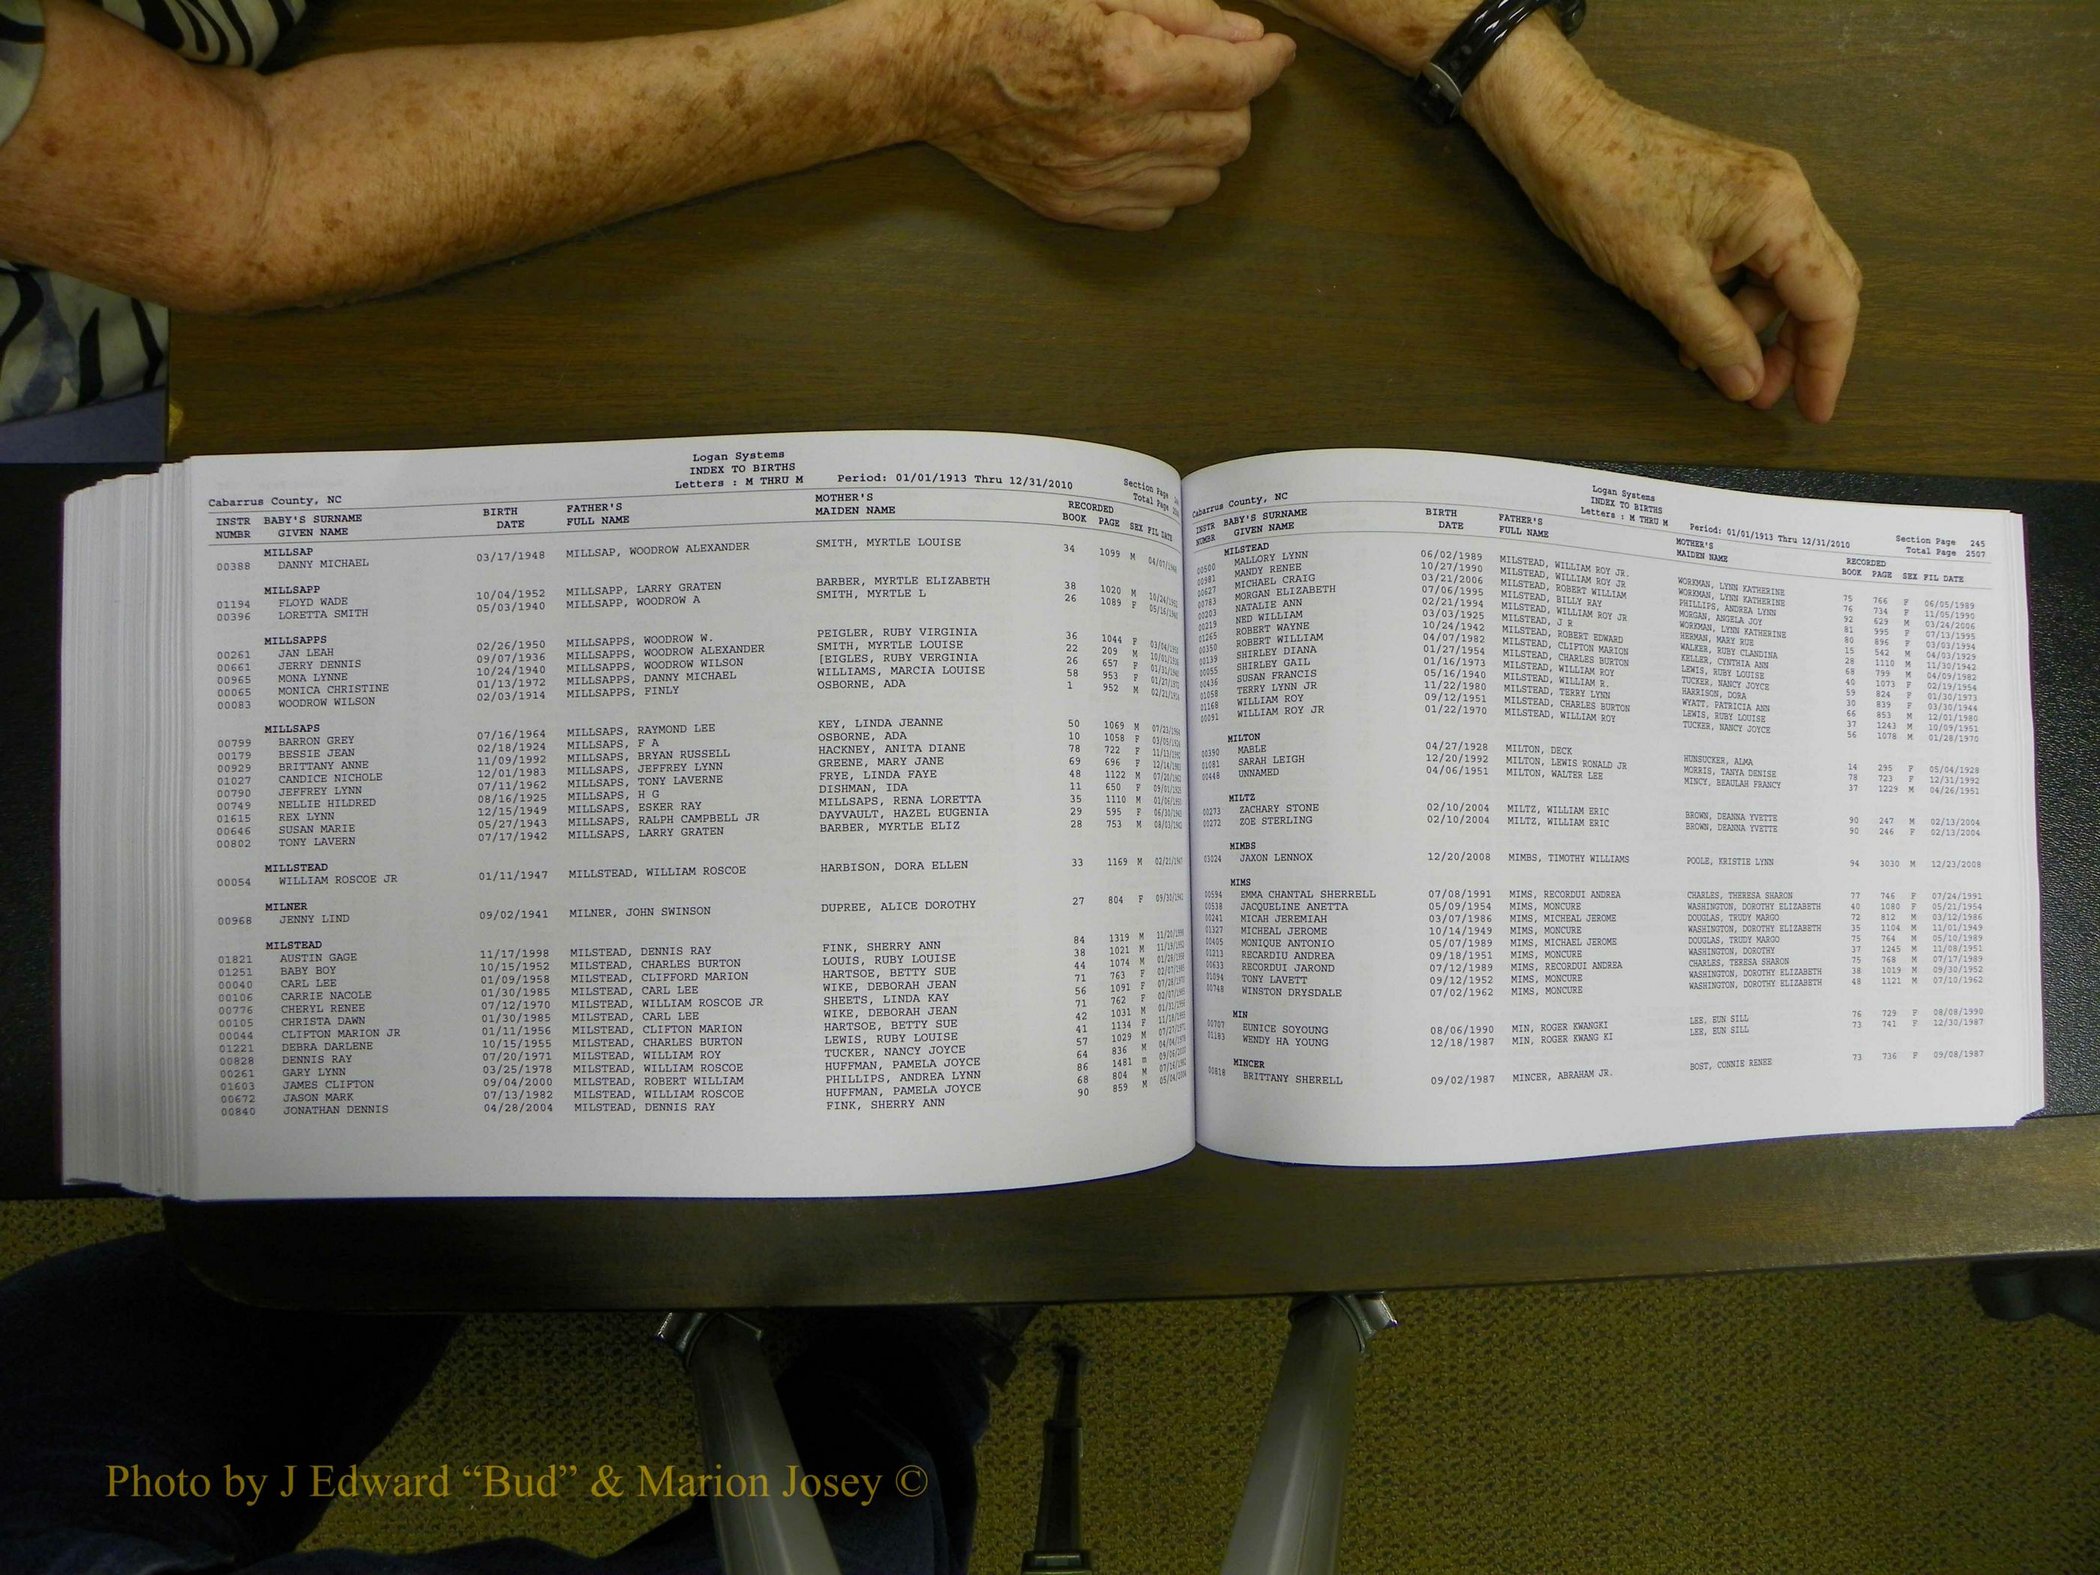 Logan Systems
INDEX TO BIRTHS
Letters : M THRU M Period: 01/01/1913 Thru 12/31/2010 Section Page
Cabarrus County, NC Total Page
INSTR BABY'S SURNAME BIRTH FATHER'S MOTHER'S RECORDED
NUMBR GIVEN NAME DATE FULL NAME MAIDEN NAME BOOK PAGE SEX FIL DATE
MILLSAP
00388 DANNY MICHAEL 03/17/1948 MILLSAP, WOODROW ALEXANDER SMITH, MYRTLE LOUISE 34 1099 M
MILLSAPP
01194 FLOYD WADE 10/04/1952 MILLSAPP, LARRY GRATEN BARBER, MYRTLE ELIZABETH 38 1020 M
00396 LORETTA SMITH 05/03/1940 MILLSAPP, WOODROW A SMITH, MYRTLE L 26 1089 F
MILLSAPPS
00261 JAN LEAH 02/26/1950 MILLSAPPS, WOODROW W. PEIGLER, RUBY VIRGINIA 36 1044 F
00661 JERRY DENNIS 09/07/1936 MILLSAPPS, WOODROW ALEXANDER SMITH, MYRTLE LOUISE 22 209 M
00965 MONA LYNNE 10/24/1940 MILLSAPPS, WOODROW WILSON [EIGLES, RUBY VERGINIA 26 657 F
00065 MONICA CHRISTINE 01/13/1972 MILLSAPPS, DANNY MICHAEL WILLIAMS, MARCIA LOUISE 58 953 F
00083 WOODROW WILSON 02/03/1914 MILLSAPPS, FINLY OSBORNE, ADA 1 952 M
MILLSAPS
00799 BARRON GREY 07/16/1964 MILLSAPS, RAYMOND LEE KEY, LINDA JEANNE 50 1069 M
00179 BESSIE JEAN 02/18/1924 MILLSAPS, F A OSBORNE, ADA 10 1058 F
00929 BRITTANY ANNE 11/09/1992 MILLSAPS, BRYAN RUSSELL HACKNEY, ANITA DIANE 78 722 F
01027 CANDICE NICHOLE 12/01/1983 MILLSAPS, JEFFREY LYNN GREENE, MARY JANE 69 696 F
00790 JEFFREY LYNN 07/11/1962 MILLSAPS, TONY LAVERNE FRYE, LINDA FAYE 48 1122 M
00749 NELLIE HILDRED 08/16/1925 MILLSAPS, H G DISHMAN, IDA 11 650 F
01615 REX LYNN 12/15/1949 MILLSAPS, ESKER RAY MILLSAPS, RENA LORETTA 35 1110 M
00646 SUSAN MARIE 05/27/1943 MILLSAPS, RALPH CAMPBELL JR DAYVAULT, HAZEL EUGENIA 29 595 F
00802 TONY LAVERN 07/17/1942 MILLSAPS, LARRY GRATEN BARBER, MYRTLE ELIZ 28 753 M
MILLSTEAD
00054 WILLIAM ROSCOE JR 01/11/1947 MILLSTEAD, WILLIAM ROSCOE HARBISON, DORA ELLEN 33 1169 M
MILNER
00968 JENNY LIND 09/02/1941 MILNER, JOHN SWINSON DUPREE, ALICE DOROTHY 27 804 F
MILSTEAD
01821 AUSTIN GAGE 11/17/1998 MILSTEAD, DENNIS RAY FINK, SHERRY ANN 84 1319 M
01251 BABY BOY 10/15/1952 MILSTEAD, CHARLES BURTON LOUIS, RUBY LOUISE 38 1021 M
00040 CARL LEE 01/09/1958 MILSTEAD, CLIFFORD MARION HARTSOE, BETTY SUE 44 1074 M
00106 CARRIE NACOLE 01/30/1985 MILSTEAD, CARL LEE WIKE, DEBORAH JEAN 71 763 F
00776 CHERYL RENEE 07/12/1970 MILSTEAD, WILLIAM ROSCOE JR SHEETS, LINDA KAY 56 1091 F
00105 CHRISTA DAWN 01/30/1985 MILSTEAD, CARL LEE WIKE, DEBORAH JEAN 71 762 F
00044 CLIFTON MARION JR 01/11/1956 MILSTEAD, CLIFTON MARION HARTSOE, BETTY SUE 42 1031 M
01221 DEBRA DARLENE 10/15/1955 MILSTEAD, CHARLES BURTON LEWIS, RUBY LOUISE 41 1134 F
00828 DENNIS RAY 07/20/1971 MILSTEAD, WILLIAM ROY TUCKER, NANCY JOYCE 57 1029 M
00261 GARY LYNN 03/25/1978 MILSTEAD, WILLIAM ROSCOE HUFFMAN, PAMELA JOYCE 64 836 M
01603 JAMES CLIFTON 09/04/2000 MILSTEAD, ROBERT WILLIAM PHILLIPS, ANDREA LYNN 86 1481 m
00672 JASON MARK 07/13/1982 MILSTEAD, WILLIAM ROSCOE HUFFMAN, PAMELA JOYCE 68 804 M
00840 JONATHAN DENNIS 04/28/2004 MILSTEAD, DENNIS RAY FINK, SHERRY ANN 90 859 M
Logan Systems
INDEX TO BIRTHS
Letters : M THRU M Period: 01/01/1913 Thru 12/31/2010 Section Page 245
Cabarrus County, NC Total Page 2507
INSTR BABY'S SURNAME BIRTH FATHER'S MOTHER'S RECORDED
NUMBR GIVEN NAME DATE FULL NAME MAIDEN NAME BOOK PAGE SEX FIL DATE
MILSTEAD
00500 MALLORY LYNN 06/02/1989 MILSTEAD, WILLIAM ROY JR. WORKMAN, LYNN KATHERINE 75 766 F 06/05/1989
00981 MANDY RENEE 10/27/1990 MILSTEAD, WILLIAM ROY JR WORKMAN, LYNN KATHERINE 76 734 F 11/05/1990
00627 MICHAEL CRAIG 03/21/2006 MILSTEAD, ROBERT WILLIAM PHILLIPS, ANDREA LYNN 92 629 M 03/24/2006
00783 MORGAN ELIZABETH 07/06/1995 MILSTEAD, BILLY RAY MORGAN, ANGELA JOY 81 995 F 07/13/1995
00203 NATALIE ANN 02/21/1994 MILSTEAD, WILLIAM ROY JR WORKMAN, LYNN KATHERINE 80 896 F 03/03/1994
00219 NED WILLIAM 03/03/1925 MILSTEAD, J R HERMAN, MARY RUE 15 542 M 04/03/1929
01265 ROBERT WAYNE 10/24/1942 MILSTEAD, ROBERT EDWARD WALKER, RUBY CLANDINA 28 1110 M 11/30/1942
00350 ROBERT WILLIAM 04/07/1982 MILSTEAD, CLIFTON MARION KELLER, CYNTHIA ANN 68 799 M 04/09/1982
00139 SHIRLEY DIANA 01/27/1954 MILSTEAD, CHARLES BURTON LEWIS, RUBY LOUISE 40 1073 F 02/19/1954
00055 SHIRLEY GAIL 01/16/1973 MILSTEAD, WILLIAM ROY TUCKER, NANCY JOYCE 59 824 F 01/30/1973
00436 SUSAN FRANCIS 05/16/1940 MILSTEAD, WILLIAM R. HARRISON, DORA 30 839 F 03/30/1944
01058 TERRY LYNN JR 11/22/1980 MILSTEAD, TERRY LYNN WYATT, PATRICIA ANN 66 853 M 12/01/1980
01168 WILLIAM ROY 09/12/1951 MILSTEAD, CHARLES BURTON LEWIS, RUBY LOUISE 37 1243 M 10/09/1951
00091 WILLIAM ROY JR 01/22/1970 MILSTEAD, WILLIAM ROY TUCKER, NANCY JOYCE 56 1078 M 01/28/1970
MILTON
00390 MABLE 04/27/1928 MILTON, DECK HUNSUCKER, ALMA 14 295 F 05/04/1928
01081 SARAH LEIGH 12/20/1992 MILTON, LEWIS RONALD JR MORRIS, TANYA DENISE 78 723 F 12/31/1992
00448 UNNAMED 04/06/1951 MILTON, WALTER LEE MINCY, BEAULAH FRANCY 37 1229 M 04/26/1951
MILTZ
00273 ZACHARY STONE 02/10/2004 MILTZ, WILLIAM ERIC BROWN, DEANNA YVETTE 90 247 M 02/13/2004
00272 ZOE STERLING 02/10/2004 MILTZ, WILLIAM ERIC BROWN, DEANNA YVETTE 90 246 F 02/13/2004
MIMBS
03024 JAXON LENNOX 12/20/2008 MIMBS, TIMOTHY WILLIAMS POOLE, KRISTIE LYNN 94 3030 M 12/23/2008
MIMS
00594 EMMA CHANTAL SHERRELL 07/08/1991 MIMS, RECORDUI ANDREA CHARLES, THERESA SHARON 77 746 F 07/24/1991
00538 JACQUELINE ANETTA 05/09/1954 MIMS, MONCURE WASHINGTON, DOROTHY ELIZABETH 40 1080 F 05/21/1954
00241 MICAH JEREMIAH 03/07/1986 MIMS, MICHEAL JEROME DOUGLAS, TRUDY MARGO 72 812 M 03/12/1986
01327 MICHEAL JEROME 10/14/1949 MIMS, MONCURE WASHINGTON, DOROTHY ELIZABETH 35 1104 M 11/01/1949
00405 MONIQUE ANTONIO 05/07/1989 MIMS, MICHAEL JEROME DOUGLAS, TRUDY MARGO 75 764 M 05/10/1989
01213 RECARDIU ANDREA 09/18/1951 MIMS, MONCURE WASHINGTON, DOROTHY 37 1245 M 11/08/1951
00633 RECORDUI JAROND 07/12/1989 MIMS, RECORDUI ANDREA CHARLES, TERESA SHARON 75 768 M 07/17/1989
01094 TONY LAVETT 09/12/1952 MIMS, MONCURE WASHINGTON, DOROTHY ELIZABETH 38 1019 M 09/30/1952
00748 WINSTON DRYSDALE 07/02/1962 MIMS, MONCURE WASHINGTON, DOROTHY ELIZABETH 48 1121 M 07/10/1962
MIN
00707 EUNICE SOYOUNG 08/06/1990 MIN, ROGER KWANGKI LEE, EUN SILL 76 729 F 08/08/1990
01183 WENDY HA YOUNG 12/18/1987 MIN, ROGER KWANG KI LEE, EUN SILL 73 741 F 12/30/1987
MINCER
00818 BRITTANY SHERELL 09/02/1987 MINCER, ABRAHAM JR. BOST, CONNIE RENEE 73 736 F 09/08/1987
Photo by J Edward “Bud” & Marion Josey ©